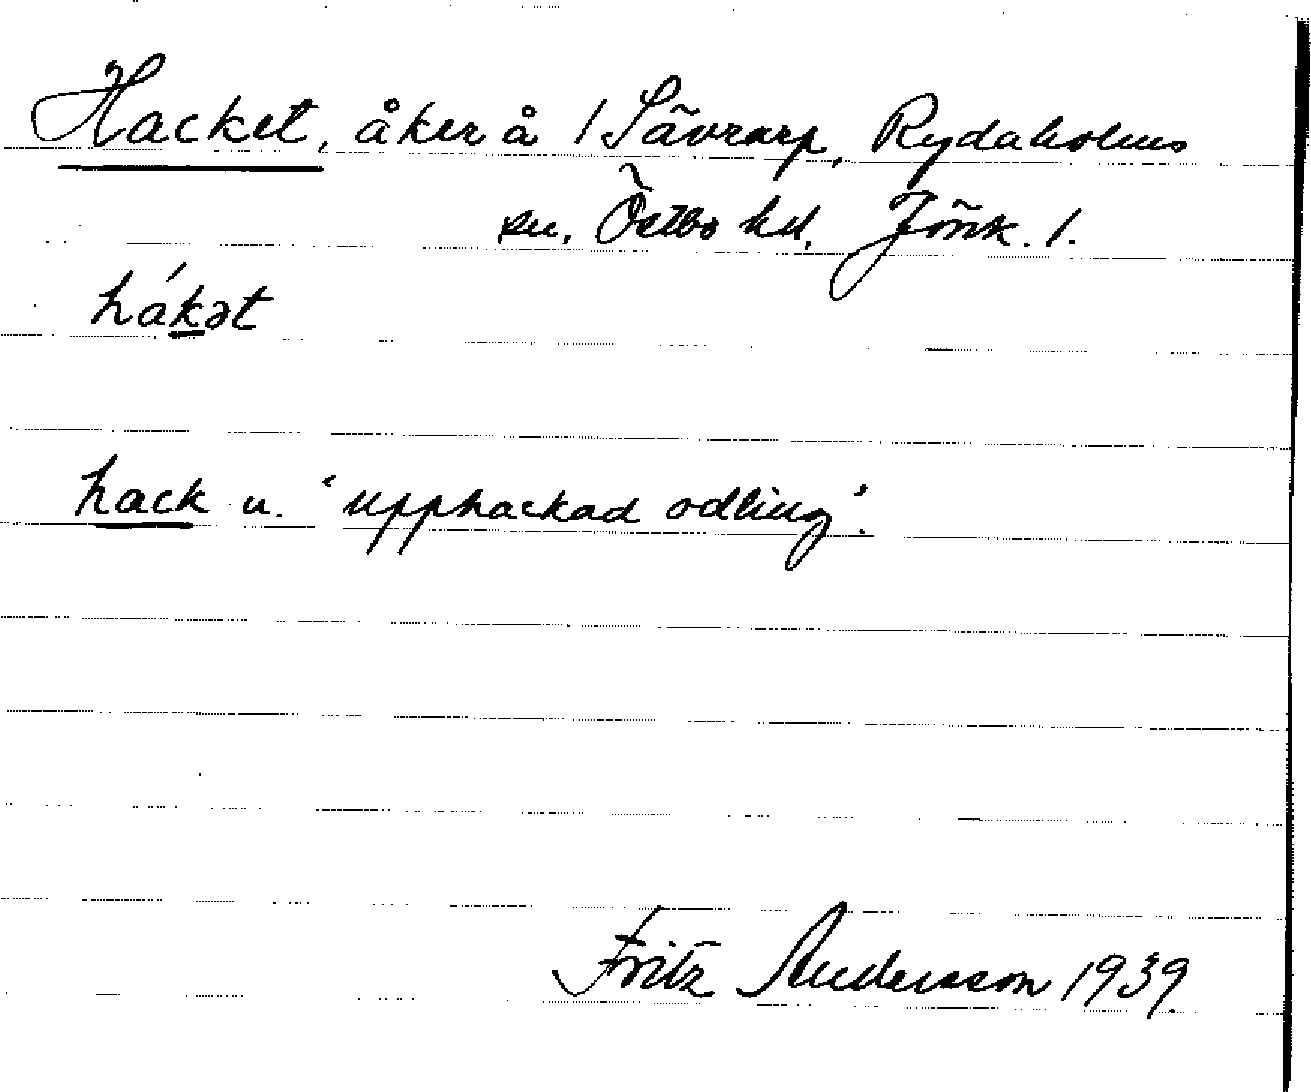 Hacket, åker å 1 Sävrarp, Rydaholms
sn, Östbo hd, Jönk. l.
hákət
hack n. 'upphackad odling'.
Fritz Andersson 1939.